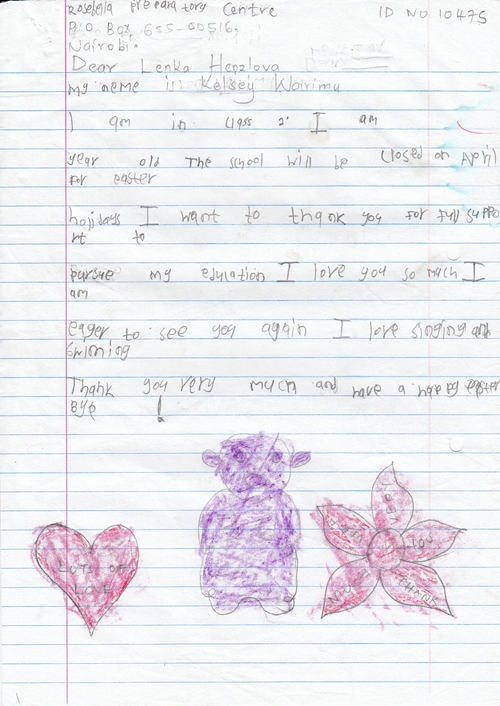 Preparatory Centre
ID NO 10475
P.O Box 655-00516,
Nairobi.
Dear Lenka Henzlova
My neme is Kelsey Wairimu
I am in class 2. I am
year old The school will be closed on April
for easter
holidays I want to thank you for full suppo
rt to
pursue my education I love you so much I
am
eager to see you again I love singing and
swiming
Thank you very much and have a happy easter
Bye !
LOTS OF
LOVE
YOU
THANK